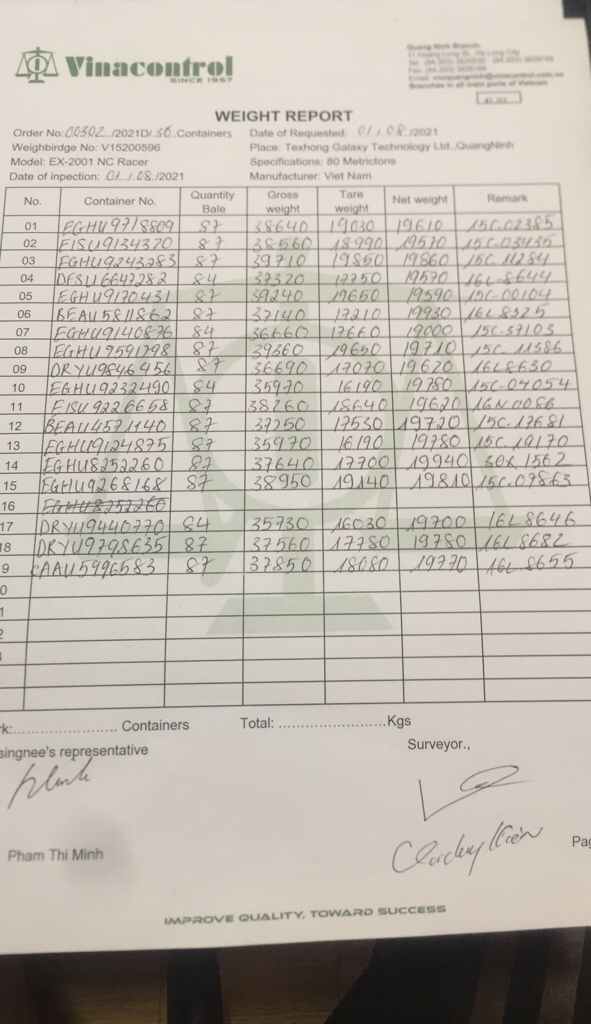 Vinacontrol
SINCE 1957
Quang Ninh Branch:
Branches in all main ports of Vietnam
WEIGHT REPORT
Order No: 00302 /2021D/ 36 Containers Date of Requested: 01 / 08 /2021
Weighbirdge No: V15200596 Place: Texhong Galaxy Technology Ltd.,QuangNinh
Model: EX-2001 NC Racer Specifications: 80 Metrictons
Date of inpection: 01 / 08 /2021 Manufacturer: Viet Nam
No. Container No. Quantity Bale Gross weight Tare weight Net weight Remark
01 EGHU9718809 87 38640 19030 19610 15C.02385
02 EISU9134320 87 38560 18990 19570 15C.03435
03 EGHU9243283 87 39710 19850 19860 15C.11284
04 DFSU6647282 84 37320 17750 19570 16L 8644
05 EGHU9170431 87 39240 19650 19590 15C.00104
06 BEAU5811862 87 37140 17210 19930 16L 8325
07 EGHU9140876 84 36660 17660 19000 15C-37103
08 EGHU9591798 87 39360 19650 19710 15C 11586
09 DRYU9846456 87 36690 17070 19620 16L8630
10 EGHU9232490 84 35970 16190 19780 15C-04054
11 EISU9226658 87 38260 18640 19620 16N 0086
12 BEAU4571140 87 37250 17530 19720 15C.17681
13 EGHU9124875 87 35970 16190 19780 15C.19170
14 EGHU8252260 87 37640 17700 19940 30K 1562
15 EGHU9268168 87 38950 19140 19810 15C.07863
16 EGHU8252260
17 DRYU9440770 84 35730 16030 19700 16L8646
18 DRYU9798635 87 37560 17780 19780 16L 8682
9 CAAU5996583 87 37850 18080 19770 16L 8655
0
1
2
k:........................ Containers Total: .........................Kgs
singnee's representative Surveyor.,
Pham Thi Minh Pag
IMPROVE QUALITY, TOWARD SUCCESS